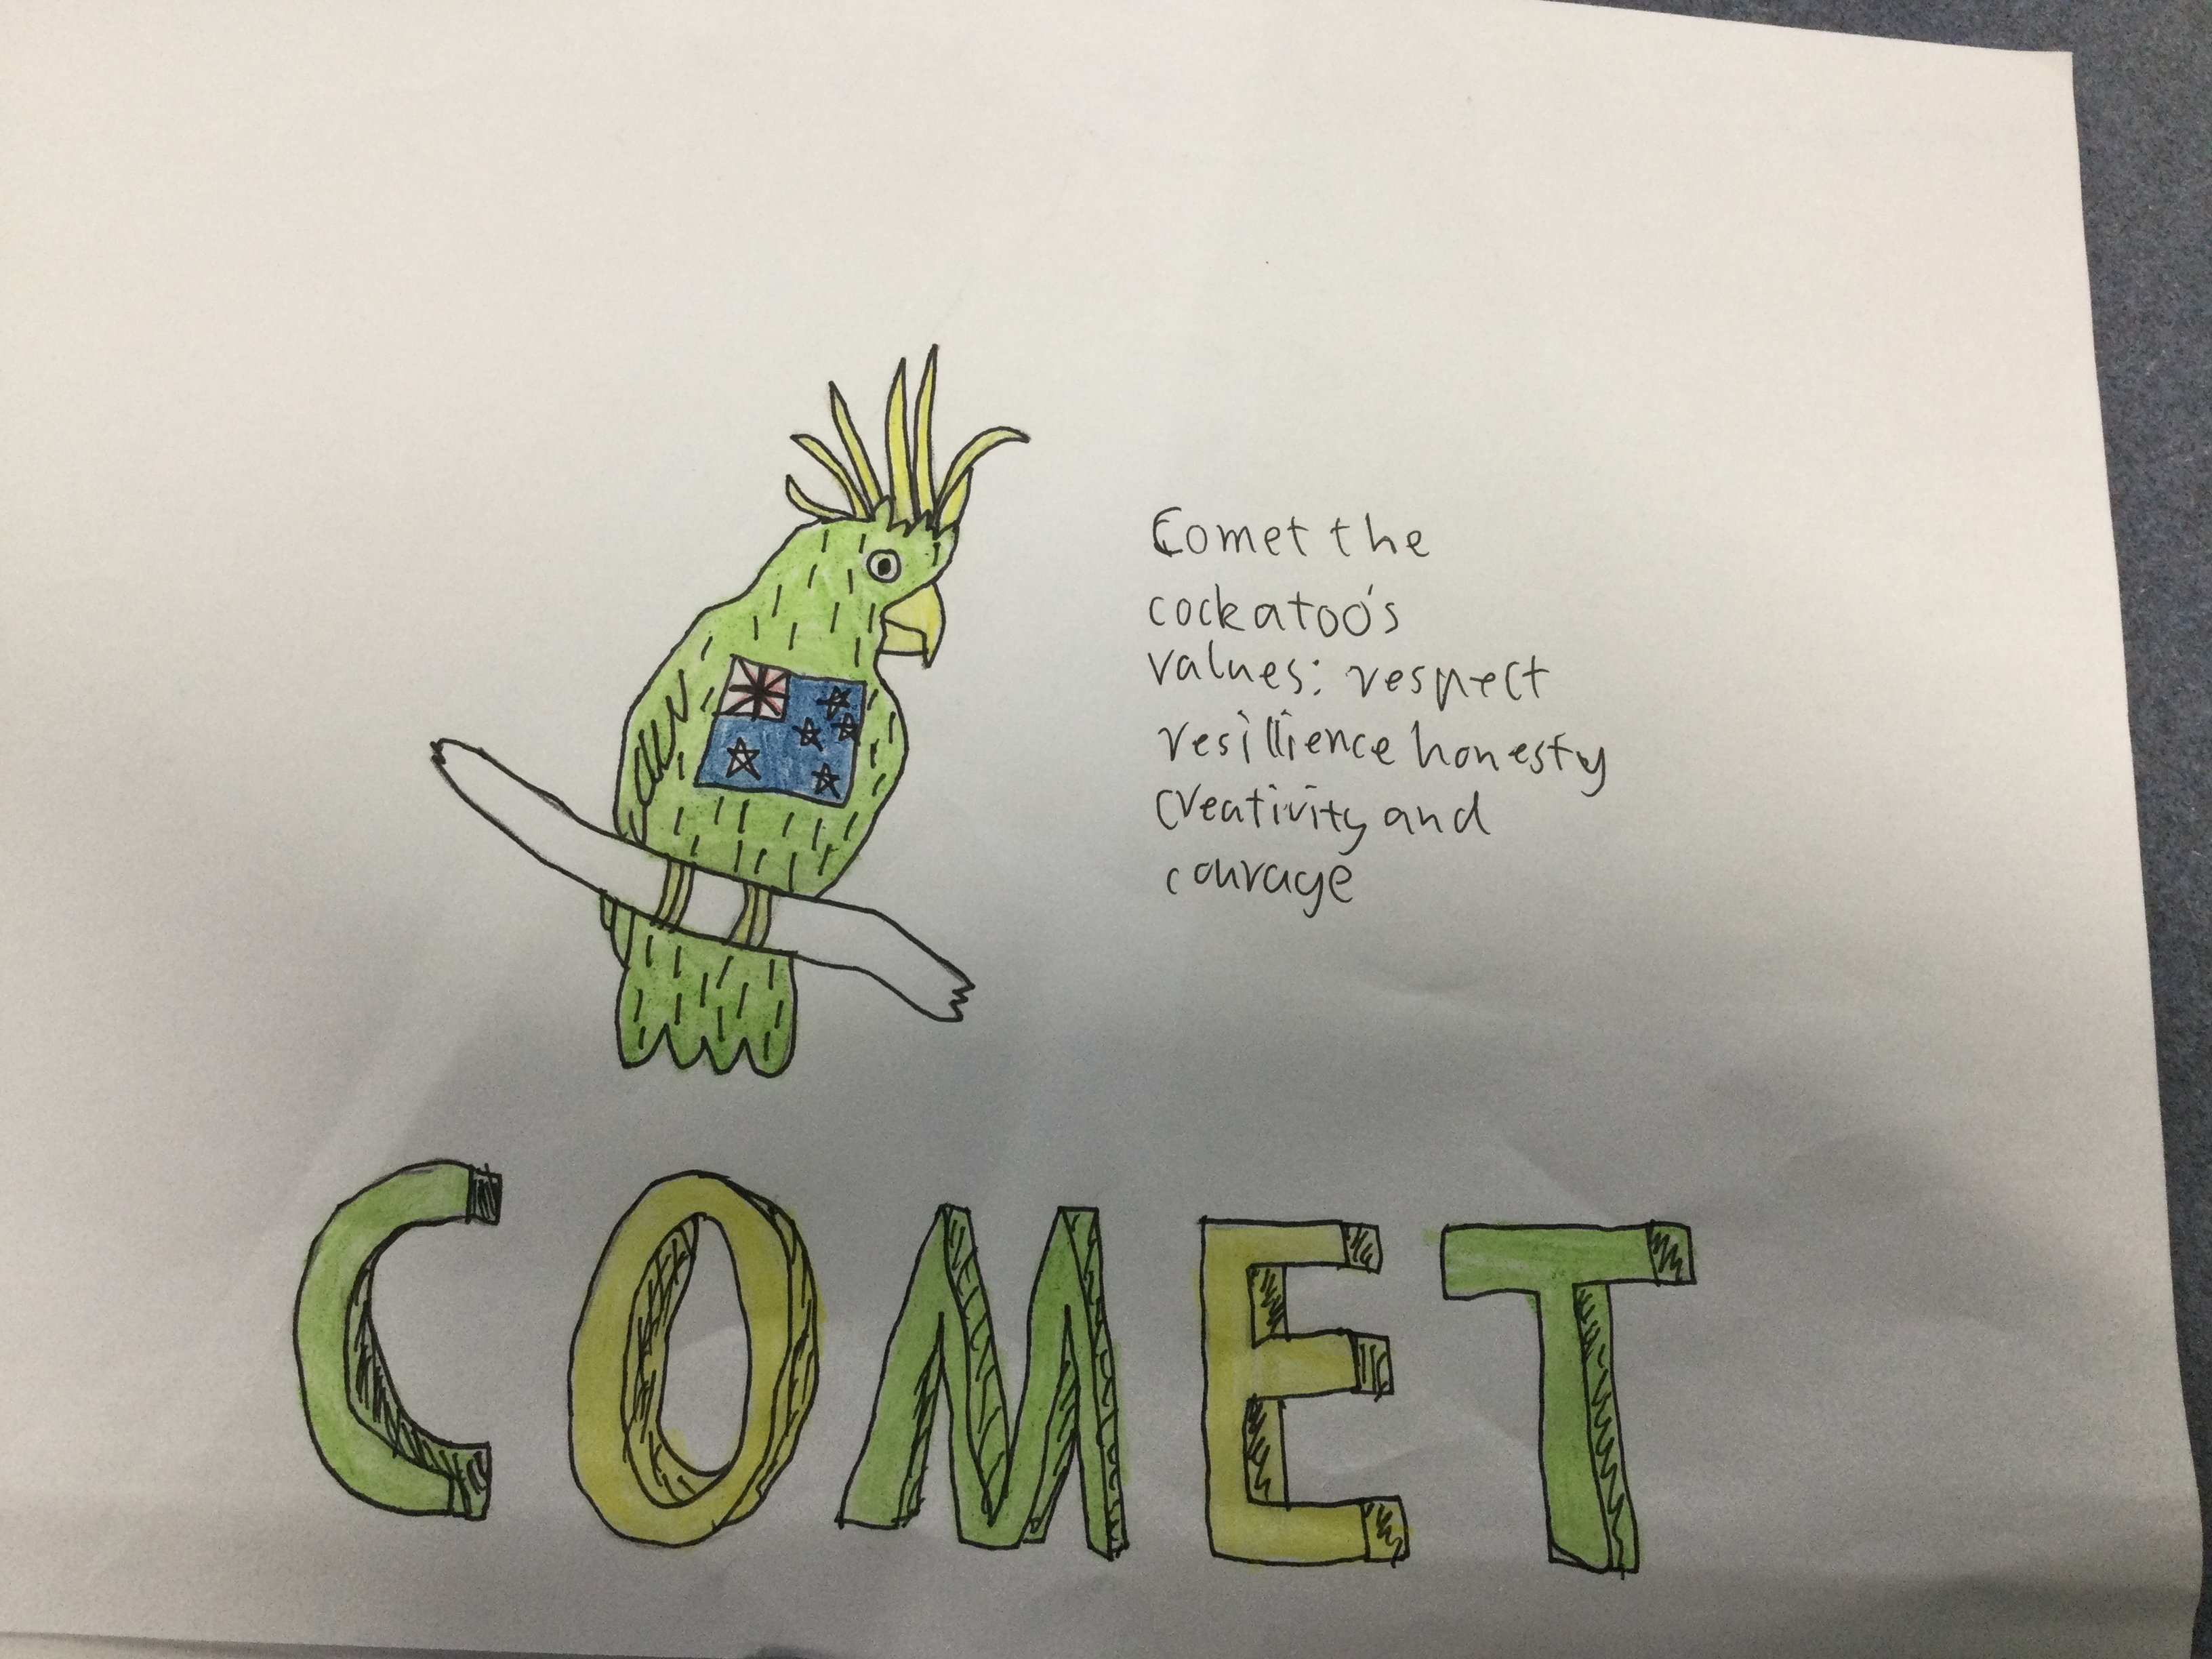 Comet the
cockatoo's
values: respect
resillience honesty
creativity and
courage
COMET